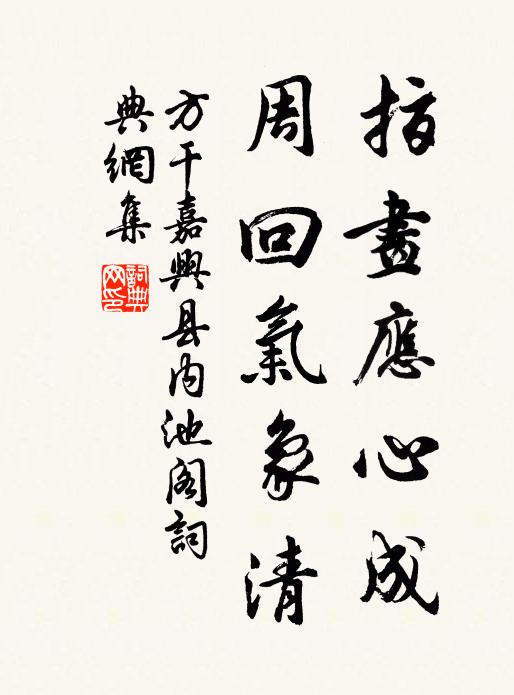 指畫應心成
周回氣象清
方干嘉興县内池阁詞
典網集
詞典网印